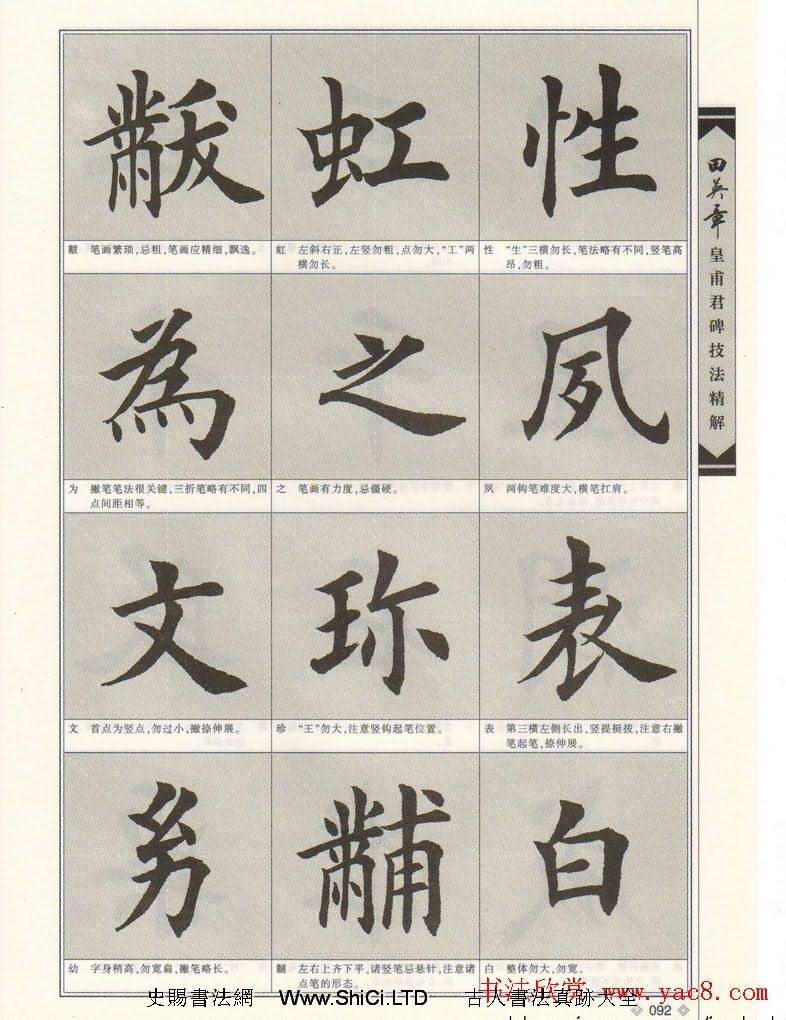 黻
黻 笔画繁琐,忌粗,笔画应精细,飘逸。
虹
虹 左斜右正,左竖勿粗,点勿大,“工”两
横勿长。
性
性 “生”三横勿长,笔法略有不同,竖笔高
昂,勿粗。
為
为 撇笔笔法很关键,三折笔略有不同,四
点间距相等。
之
之 笔画有力度,忌僵硬。
夙
夙 两钩笔难度大,横笔扛肩。
文
文 首点为竖点,勿过小,撇捺伸展。
珎
珍 “王”勿大,注意竖钩起笔位置。
表
表 第三横左侧长出,竖提挺拔,注意右撇
笔起笔,捺伸展。
㓜
幼 字身稍高,勿宽扁,撇笔略长。
黼
黼 左右上齐下平,诸竖笔忌悬针,注意诸
点笔的形态。
白
白 整体勿大,勿宽。
田英章皇甫君碑技法精解
092
史賜書法網 Www.ShiCi.LTD 古人書法真跡大全
书法欣赏 www.yac8.com